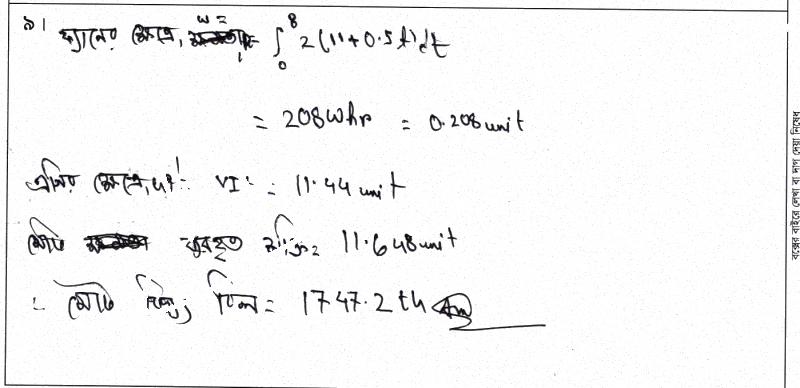 ৯। ফ্যানের ক্ষেত্রে, W = ∫₀⁸ 2(11+0.5t)dt
= 208Whr = 0.208 unit
এসির ক্ষেত্রে, W' = VI = 11.44 unit
মোট ব্যবহৃত শক্তি = 11.648 unit
∴ মোট বিদ্যুৎ বিল = 1747.2 tk Am
বক্সের বাইরে লেখা বা দাগ দেয়া নিষেধ